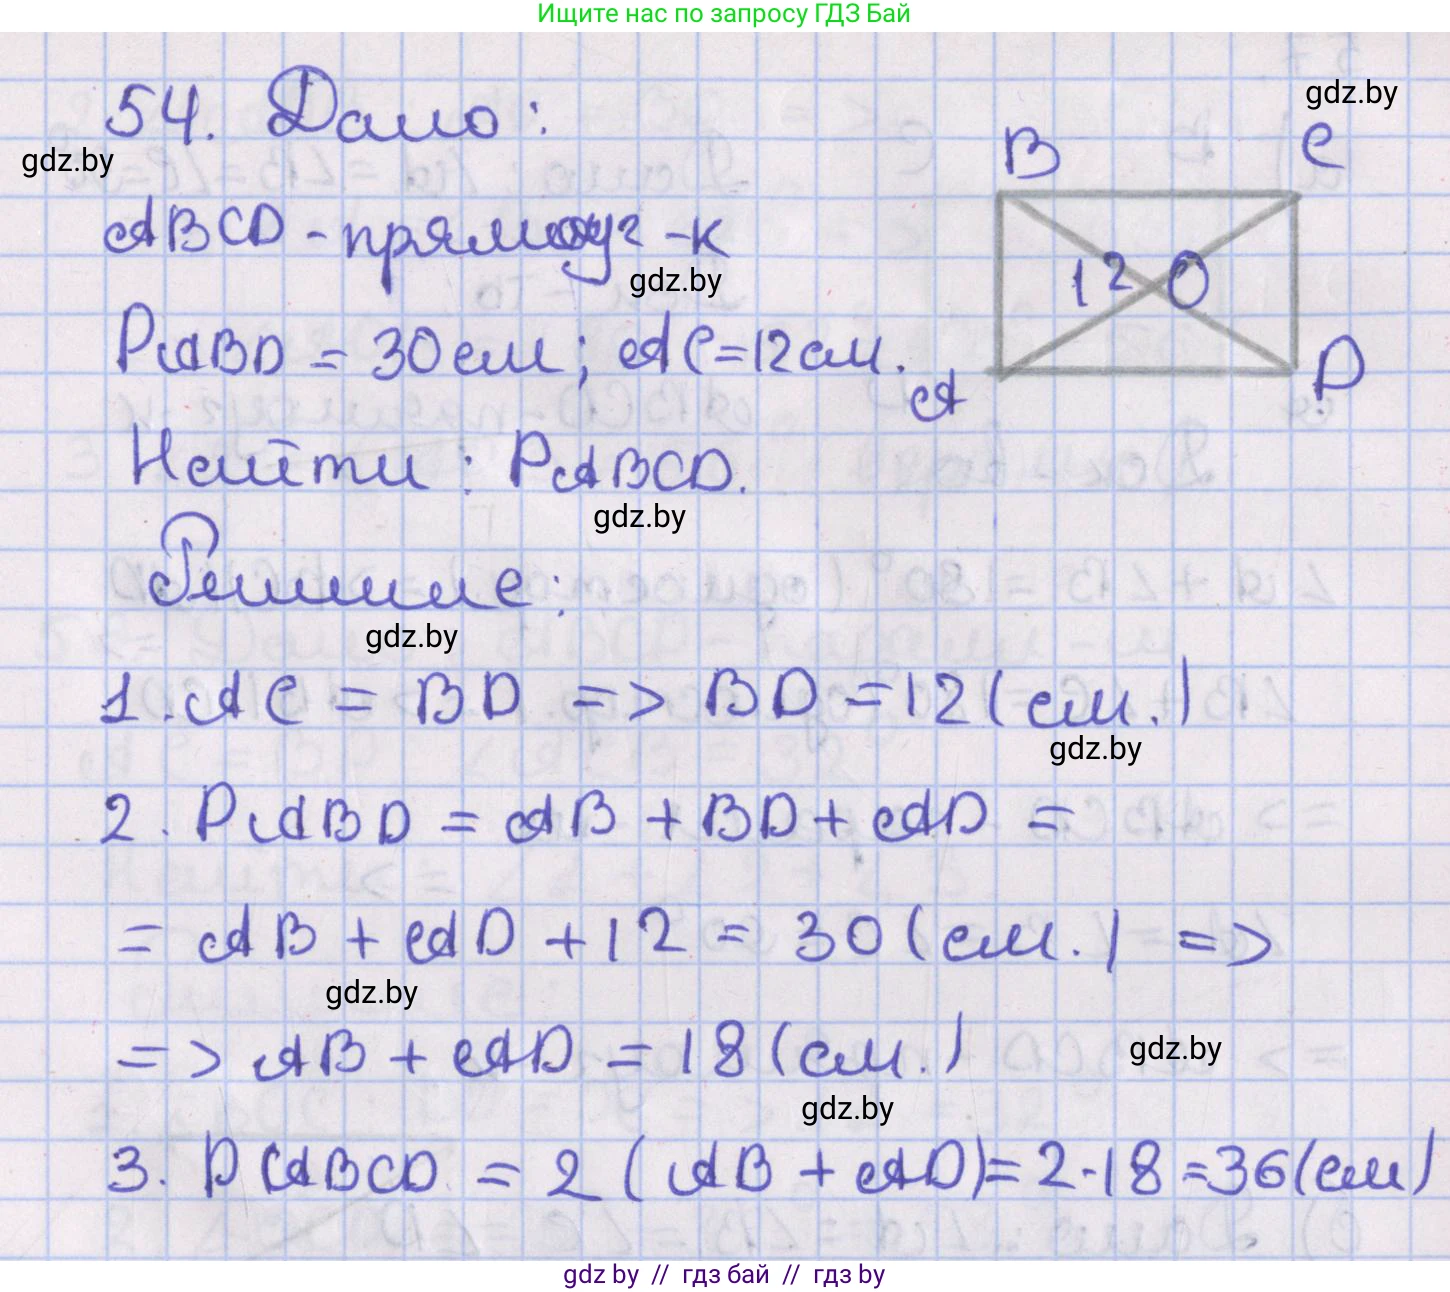 Ищите нас по запросу ГДЗ Бай
54. Дано:
gdz.by
B
C
gdz.by
ABCD - прямоуг-к
gdz.by
12 O
P ABD = 30 см; AC = 12 см.
A
D
Найти: P ABCD.
gdz.by
Решение:
gdz.by
1. AC = BD => BD = 12 (см.)
gdz.by
2. P ABD = AB + BD + AD =
= AB + AD + 12 = 30 (см.) =>
gdz.by
=> AB + AD = 18 (см.)
gdz.by
gdz.by
3. P ABCD = 2 (AB + AD) = 2 · 18 = 36 (см)
gdz.by // гдз бай // гдз by